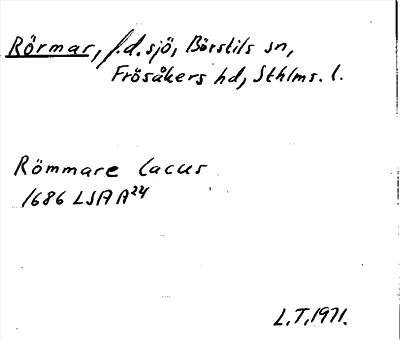 Rörmar, f.d. sjö, Börstils sn,
Frösåkers hd, Sthlms. l.
Römmare lacus
1686 LSA A24
L.T. 1971.